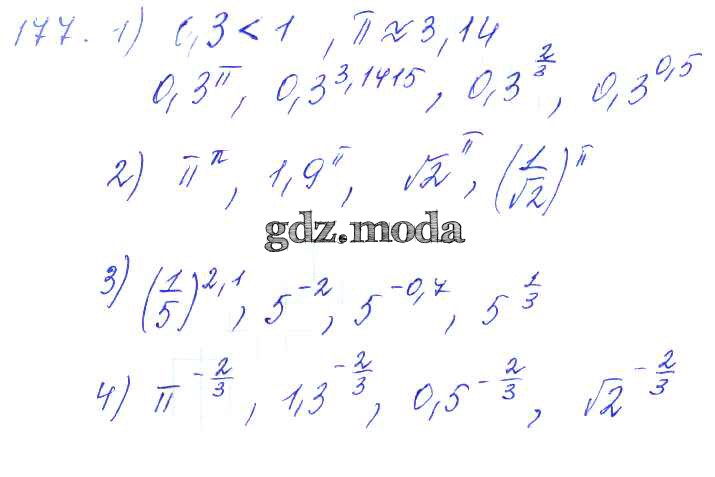 177. 1) 0,3 < 1 , π ≈ 3,14
0,3^π, 0,3^3,1415, 0,3^(2/3), 0,3^0,5
2) π^π, 1,9^π, √2^π, (1/√2)^π
gdz.moda
3) (1/5)^2,1, 5^-2, 5^-0,7, 5^(1/3)
4) π^(-2/3), 1,3^(-2/3), 0,5^(-2/3), √2^(-2/3)